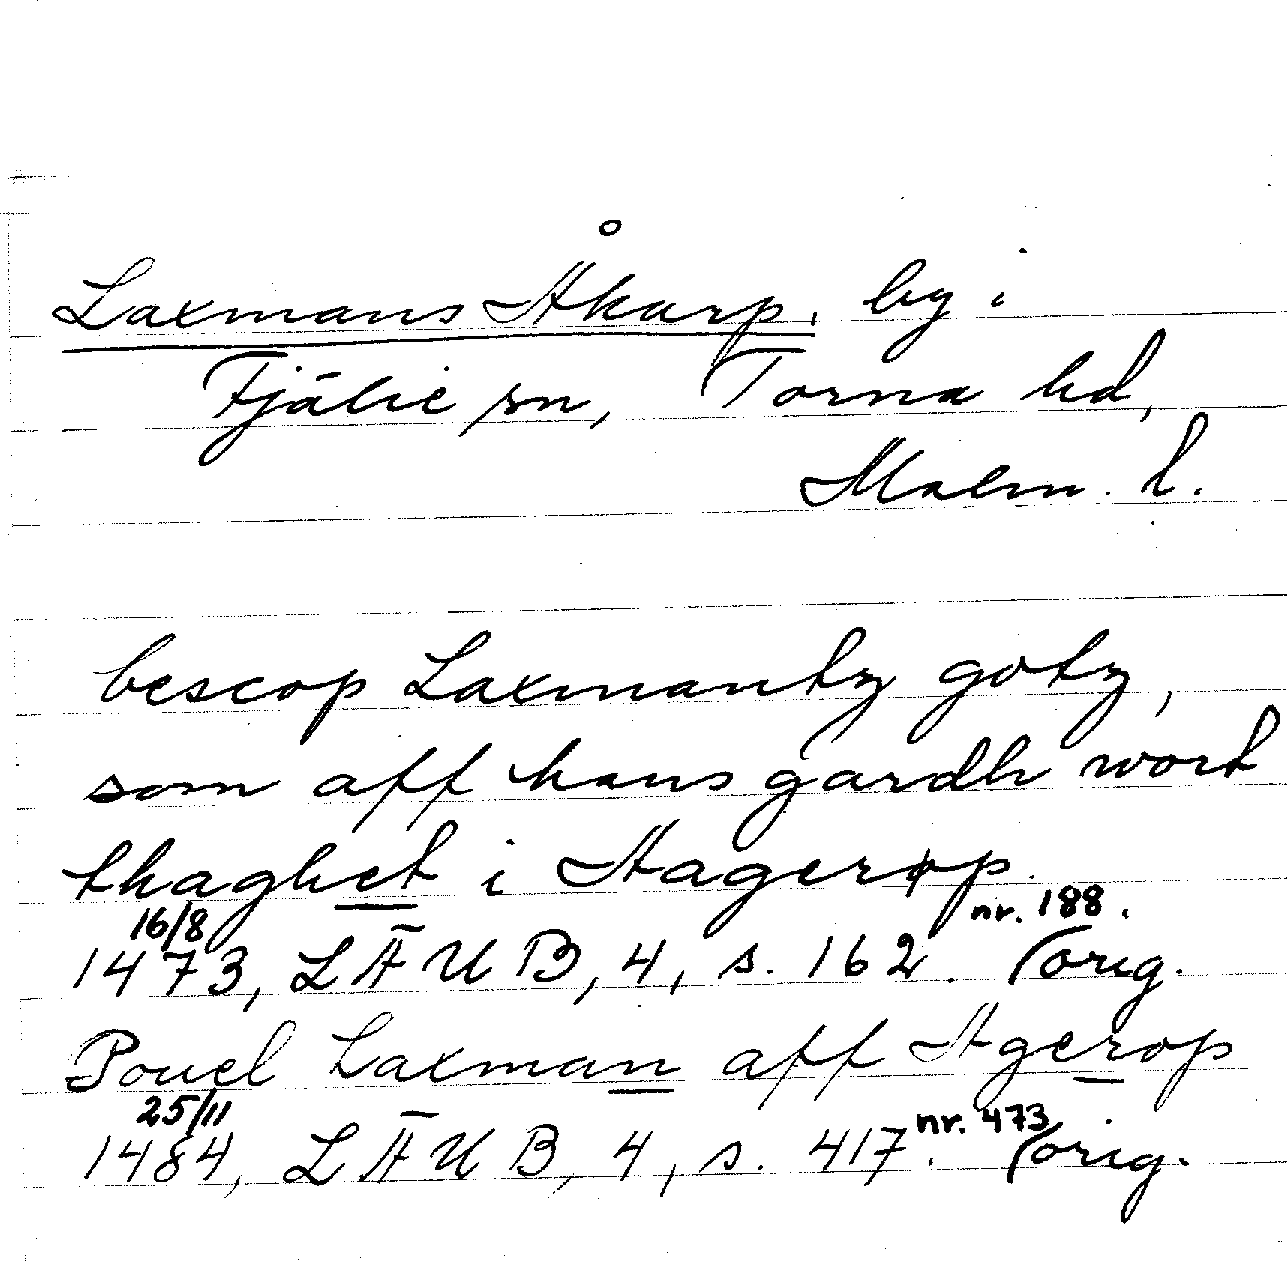 Laxmans Åkarp, by i
Fjälie sn, Torna hd,
Malm. l.
bescop Laxmantz gotz,
som aff hans gardh wort
thaghet i Aagerøp.
16/8 nr. 188.
1473, LÄUB, 4, s. 162. (orig.
Pouel Laxman aff Agerop
25/11 nr. 473
1484, LÄUB, 4, s. 417. (orig.